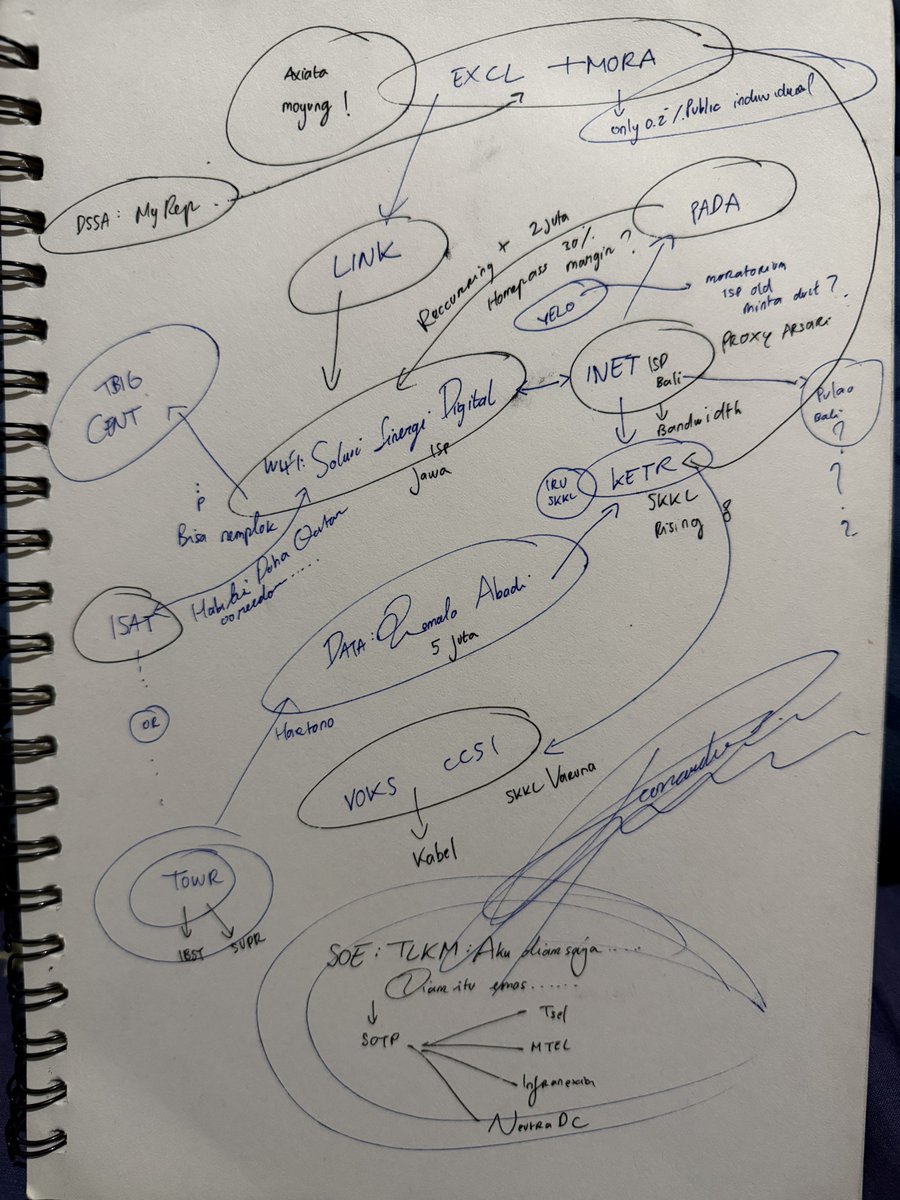 Axiata
moyung !
EXCL + MORA
only 0.2% Public individual
DSSA: MyRep...
PADA
LINK
Reccurring + 2 juta
Homepass 30%
margin ?
VELO
moratorium
ISP old
minta duct ?
PROXY ARSARI
TBIG
CENT
INET ISP
Bali
Bandwidth
Pulau
Bali
?
?
WIFI: Solusi Sinergi Digital
ISP
Jawa
IRU
SKKL
KETR
SKKL
Rising 8
Bisa nemplok
Habibi Doha Qatar
ooredoo.....
ISAT
DATA: Remala Abadi
5 juta
OR
Hartono
VOKS CCSI
SKKL Varuna
Kabel
TOWR
IBST SUPR
SOE: TLKM: Aku diam saja.....
Diam itu emas......
SOTP
Tsel
MTEL
Infranexia
NeutraDC